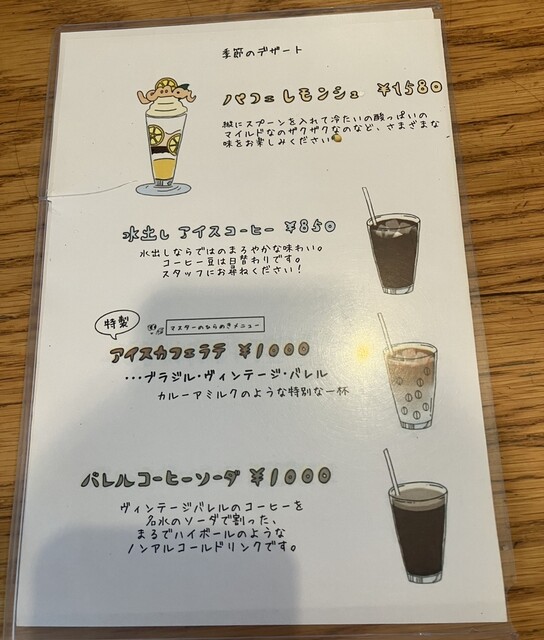 季節のデザート
パフェ レモンシュ ¥1580
縦にスプーンを入れて冷たいの酸っぱいの
マイルドなのザクザクなのなど、さまざまな
味をお楽しみください🍋
水出し アイスコーヒー ¥850
水出しならではのまろやかな味わい。
コーヒー豆は日替わりです。
スタッフにお尋ねください!
特製
マスターのひらめきメニュー
アイスカフェラテ ¥1000
・・・ブラジル・ヴィンテージ・バレル
カルーアミルクのような特別な一杯
バレルコーヒーソーダ ¥1000
ヴィンテージバレルのコーヒーを
名水のソーダで割った、
まるでハイボールのような
ノンアルコールドリンクです。